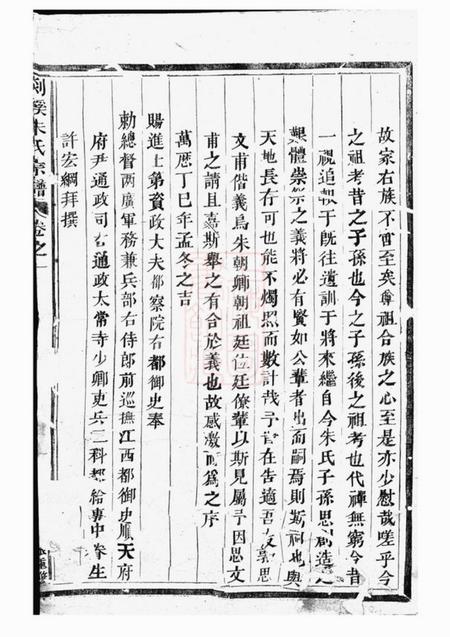 故家右族不啻至矣尊祖合族之心至是亦少慰哉嗟乎今
之祖考昔之子孫也今之子孫後之祖考也代禪無窮今昔
一視追報于既往遺訓于將來繼自今朱氏子孫思創造之
艱體崇祭之義將必有賢如公輩者出而嗣焉則斯祠也與
天地長存可也能不燭照而數計哉予昔在告適吾友郭思
文甫偕義烏朱朝卿朝祖廷位廷僚輩以斯見屬予因思文
甫之請且嘉斯舉之有合於義也故感激而爲之序
萬曆丁巳年孟冬之吉
賜進士第資政大夫都察院右都御史奉
勅總督两廣軍務兼兵部右侍郎前巡撫江西都御史順天府
府尹通政司右通政太常寺少卿吏兵二科都給事中眷生
許宏綱拜撰
剡溪朱氏宗譜 卷之一
重修